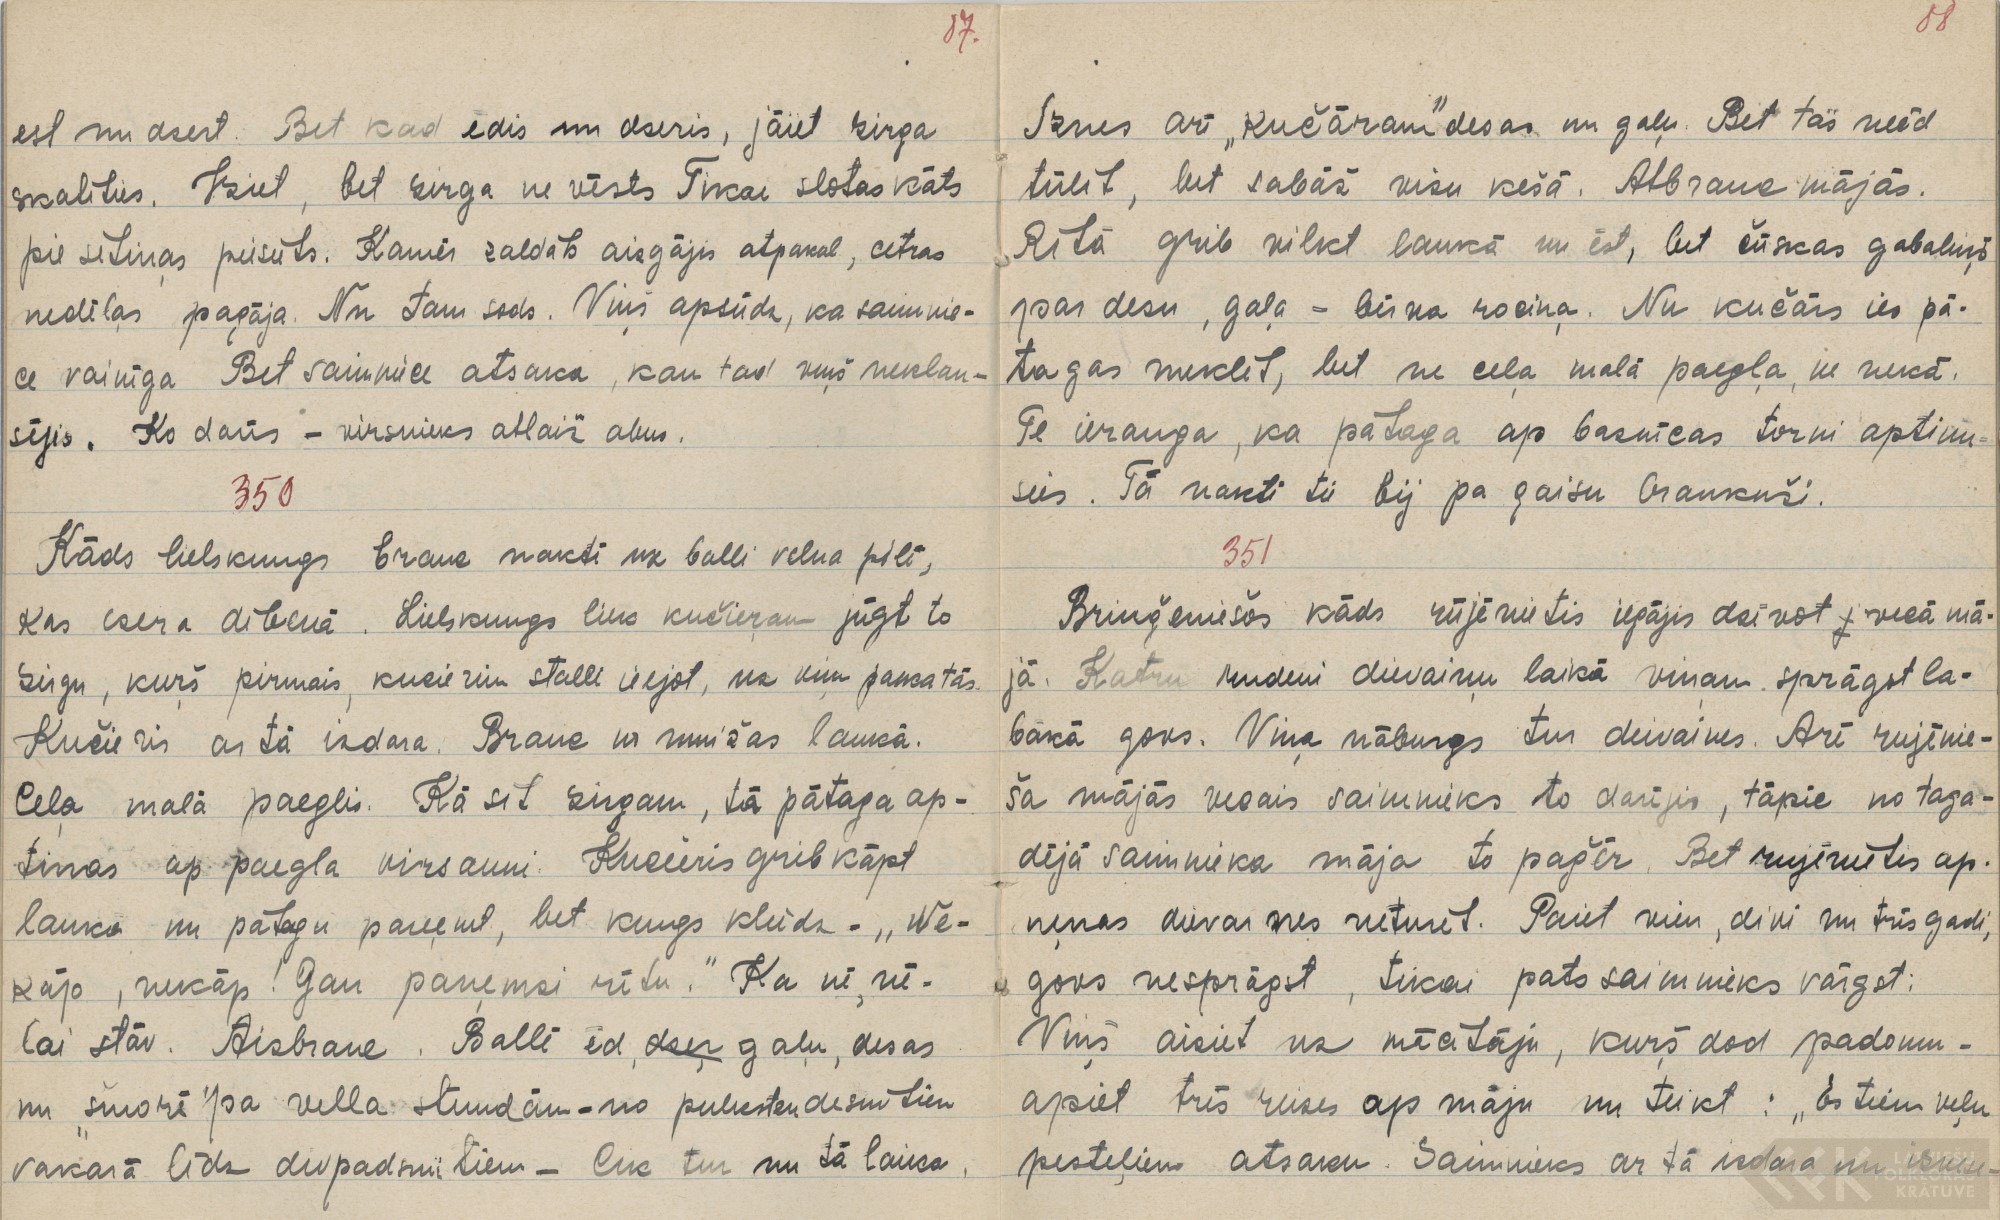 87.
est un dzert. Bet kad ēdis un dzeris, jāiet zirga
skatīties. Iziet, bet zirga ne vēsts Tikai slotas kāts
pie sētiņas piesiets. Kamēr zaldāts aizgājis atpakaļ, cetras
nedēļas pagāja. Nu tam sods. Viņš apsūdz, ka saimnie-
ce vainīga Bet saimniece atsaka, kau tad viņš neklau-
sījis. Ko darīs - virsnieks atlaiž abus.
350
Kāds lielskungs brauc naktī uz balli velna pilī,
kas ezera dibenā. Lielskungs liek kučieram jūgt to
zirgu, kurš pirmais, kučierim stallī ieejot, uz viņu paskatās.
Kučieris ar tā izdara. Brauc uz muižas laukā.
Ceļa malā paeglis. Kā sit zirgam, tā pātaga ap-
tinas ap paegļa virsauni. Kučieris grib kāpt
laukā un pātagu paņemt, bet kungs kliedz - „Ne-
kāp, nekāp! Gan paņemsi rītu." Ka nē, nē-
lai stāv. Aizbrauc. Ballē ēd, dzeŗ gaļu, desas
un „šmorē" pa vella stundām - no pulksten desmitiem
vakarā līdz divpadsmitiem - Cik tur nu tā laika.
88
Iznes arī „kučāram" desas un gaļu. Bet tas neēd
tūlit, bet sabāž visu kešā. Atbrauc mājās.
Rītā grib vilkt laukā un ēst, bet čūskas gabaliņš
par desu, gaļa - bērna rociņa. Nu kučārs ies pā-
tagas meklēt, bet ne ceļa malā paegļa, ne nekā.
Te ierauga, ka pātaga ap baznīcas torni aptinu-
sies. Tā naktī tie bij pa gaisu braukuši.
351
Briņģeniešos kāds rūjēnietis iegājis dzīvot vecā mā-
jā. Katru rudeni dievaiņu laikā viņam sprāgst la-
bākā govs. Viņa nāburgs tur dievaines. Arī rujēnie-
ša mājās vecais saimnieks to darījis, tāpēc no taga-
dējā saimnieka māja to pağēr. Bet rujēnietis ap-
ņemas dievaines neturēt. Paiet vien, divi un trīs gadi,
govs nesprāgst, tikai pats saimnieks vārgst.
Viņš aiziet uz mācitāju, kurš dod padomu -
apiet trīs reizes ap māju un teikt: „Es tiem veļu
pesteļiem atsaku. Saimnieks ar tā izdara un